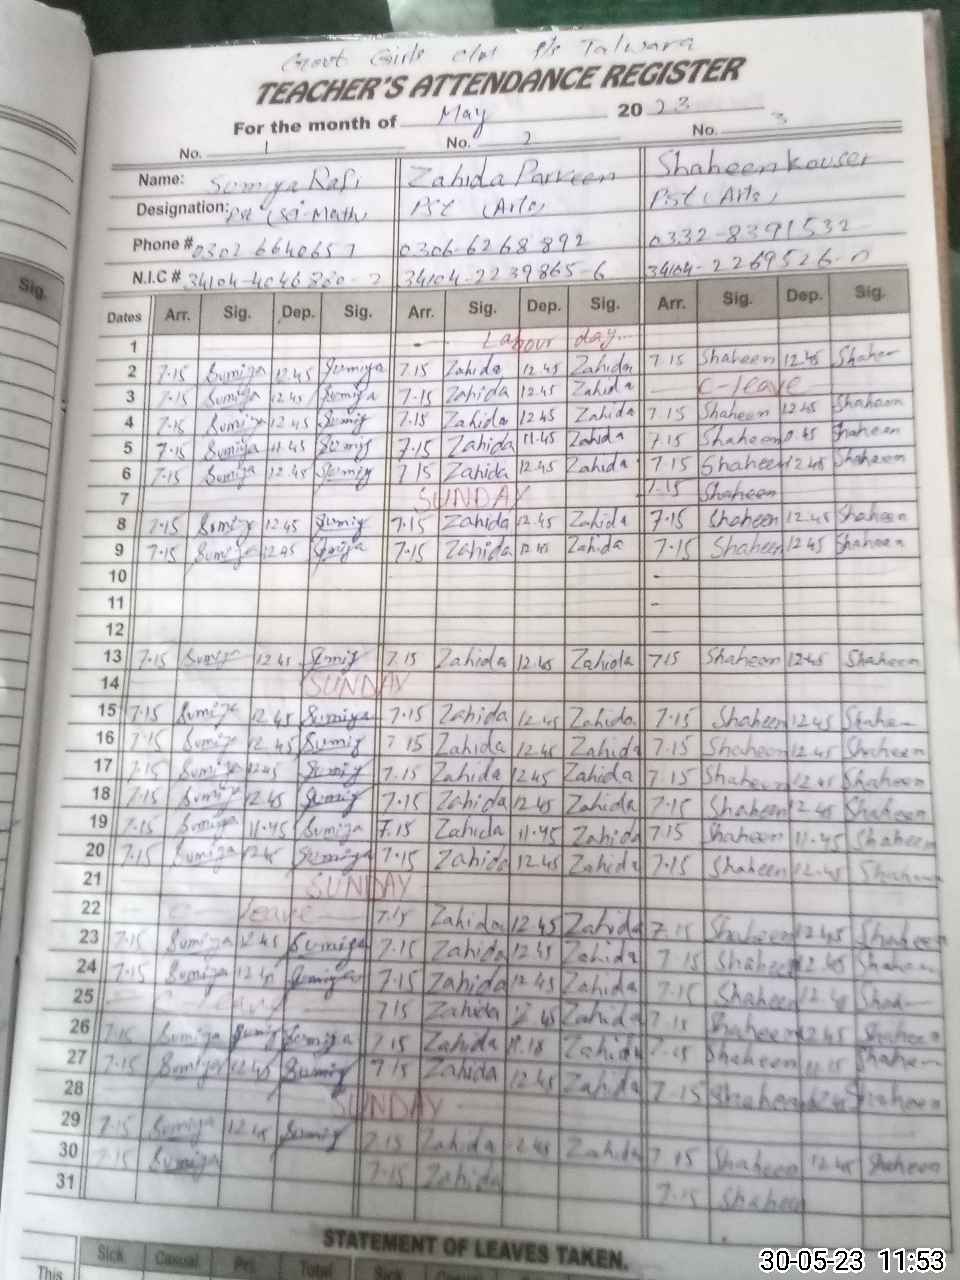 Govt Girls c/m p/s Talwara
TEACHER'S ATTENDANCE REGISTER
For the month of May 2023
No. 1 No. 2 No. 3
Name: Sumiya Rafi Zahida Parveen Shaheen kouser
Designation: Pst (Sci-Math) Pst (Arts) Pst (Arts)
Phone # 0302 6640657 0306-6268892 0332-8391532
N.I.C # 34104-2239865-6
Sig.
Dates Arr. Sig. Dep. Sig. Arr. Sig. Dep. Sig. Arr. Sig. Dep. Sig.
1 Labour day
2 7.15 Sumiya 12.45 Sumiya 7.15 Zahida 12.45 Zahida 7.15 Shaheen 12.45 Shaheen
3 7.15 Sumiya 12.45 Sumiya 7.15 Zahida 12.45 Zahida C-leave
4 7.15 Sumiya 12.45 Sumiy 7.15 Zahida 12.45 Zahida 7.15 Shaheen 12.45 Shaheen
5 7.15 Sumiya 11.45 Sumiy 7.15 Zahida 11.45 Zahida 7.15 Shaheen Shaheen
6 7.15 Sumiya 12.45 Sumiy 7.15 Zahida 12.45 Zahida 7.15 Shaheen 12.45 Shaheen
7 SUNDAY 7.15 Shaheen
8 7.15 Sumiy 12.45 Sumiy 7.15 Zahida 12.45 Zahida 7.15 Shaheen 12.45 Shaheen
9 7.15 Sumiy 12.45 Sumiya 7.15 Zahida 12.45 Zahida 7.15 Shaheen 12.45 Shaheen
10
11
12
13 7.15 Sumiy 12.45 Sumiy 7.15 Zahida 12.45 Zahida 7.15 Shaheen 12.45 Shaheen
14 SUNDAY
15 7.15 Sumiya 12.45 Sumiya 7.15 Zahida 12.45 Zahida 7.15 Shaheen 12.45 Shahe
16 7.15 Sumiya 12.45 Sumiy 7.15 Zahida 12.45 Zahida 7.15 Shaheen 12.45 Shaheen
17 7.15 Sumiya 12.45 Sumiy 7.15 Zahida 12.45 Zahida 7.15 Shaheen 12.45 Shaheen
18 7.15 Sumiya 12.45 Sumiy 7.15 Zahida 12.45 Zahida 7.15 Shaheen 12.45 Shaheen
19 7.15 Sumiya 11.45 Sumiya 7.15 Zahida 11.45 Zahida 7.15 Shaheen 11.45 Shaheen
20 7.15 Sumiya 12.45 Sumiya 7.15 Zahida 12.45 Zahida 7.15 Shaheen 12.45 Shaheen
21 SUNDAY
22 C-leave 7.15 Zahida 12.45 Zahida 7.15 Shaheen 12.45 Shaheen
23 7.15 Sumiya 12.45 Sumiya 7.15 Zahida 12.45 Zahida 7.15 Shaheen 12.45 Shaheen
24 7.15 Sumiya Sumiya 7.15 Zahida 12.45 Zahida 7.15 Shaheen Shah
25 C-leave 7.15 Zahida 12.45 Zahida 7.15 Shaheen 12.45 Shaheen
26 7.15 Sumiya Sumiy Sumiya 7.15 Zahida Zahida 7.15 Shaheen 11.15 Shahe
27 7.15 Sumiya 12.45 Sumiy 7.15 Zahida 12.45 Zahida 7.15 Shaheen 12.45 Shaheen
28 SUNDAY
29 7.15 Sumiya 12.45 Sumiy 7.15 Zahida 12.45 Zahida 7.15 Shaheen 12.45 Shaheen
30 7.15 Sumiya 7.15 Zahida 7.15 Shaheen
31
STATEMENT OF LEAVES TAKEN.
This Sick Casual Pri. Total Sick
30-05-23 11:53